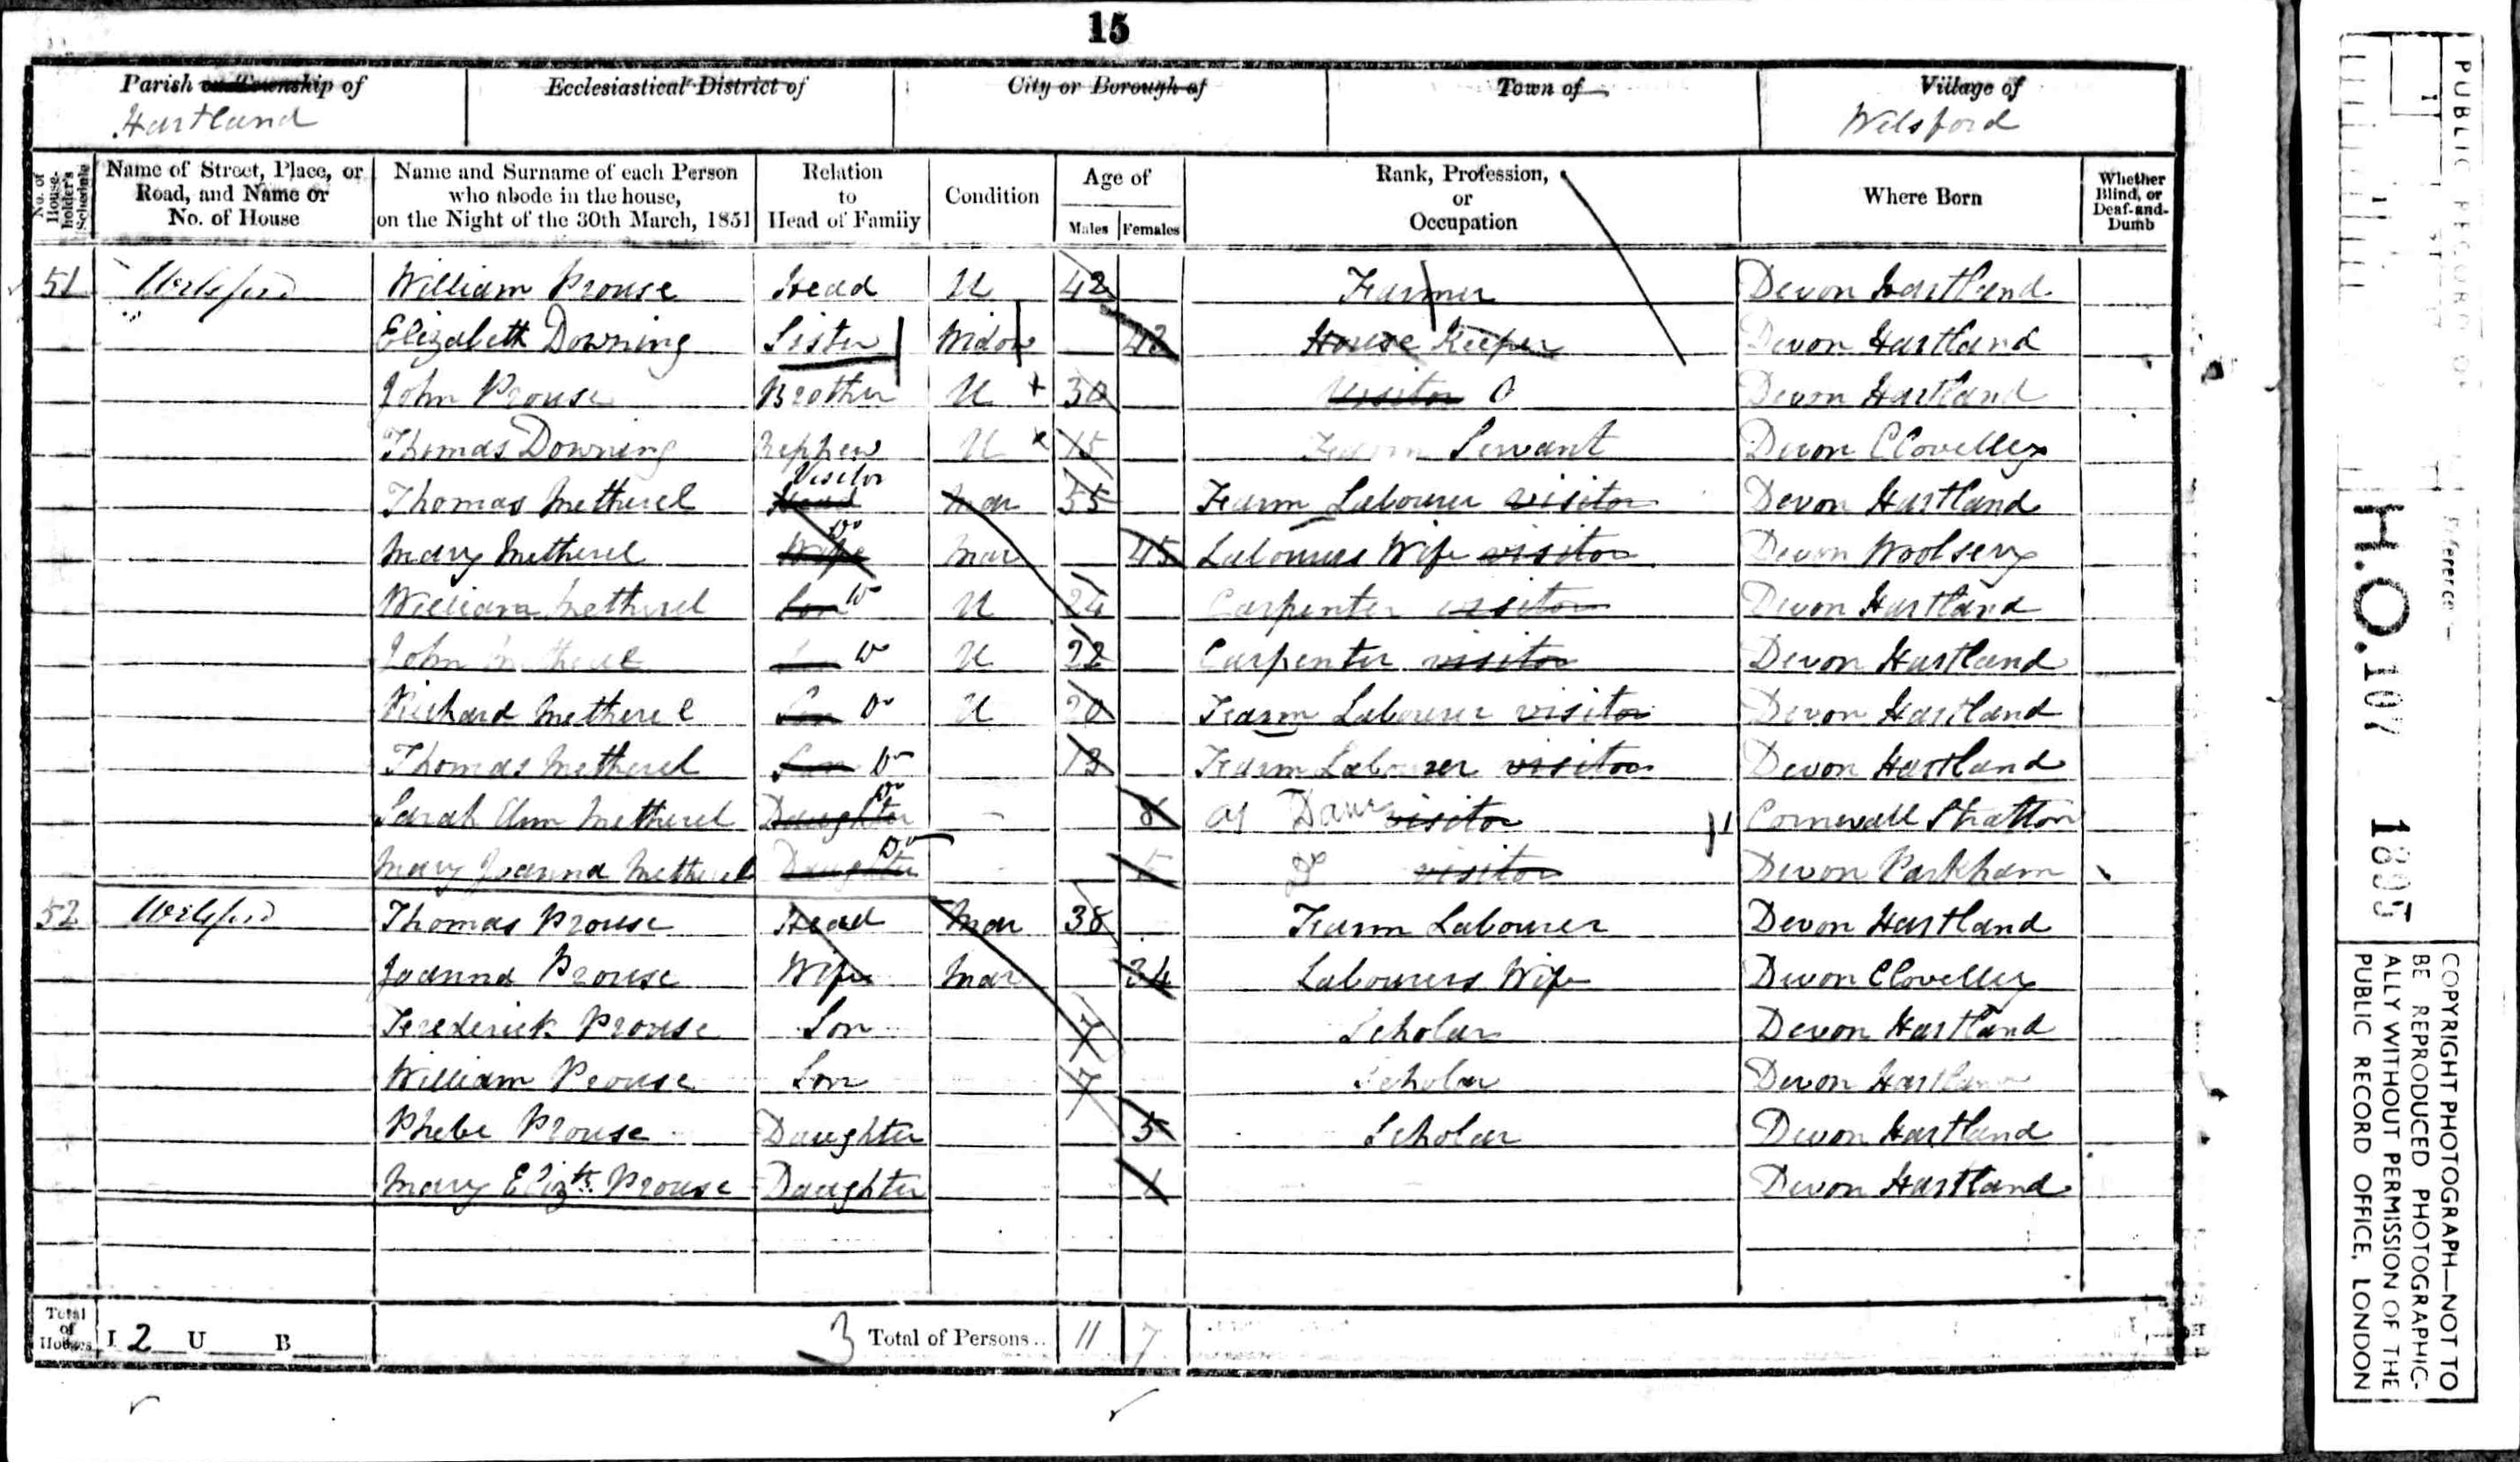 15
Parish or Township of Ecclesiastical District of City or Borough of Town of Village of
Hartland Wilsford
No. of Householder's Schedule Name of Street, Place, or Road, and Name or No. of House Name and Surname of each Person who abode in the house, on the Night of the 30th March, 1851 Relation to Head of Family Condition Age of Males Females Rank, Profession, or Occupation Where Born Whether Blind, or Deaf-and-Dumb
51 Wilsford William Prouse Head U 42 Farmer Devon Hartland
Elizabeth Downing Sister Widow 42 House Keeper Devon Hartland
John Prouse Brother U 30 Visitor Devon Hartland
Thomas Downing Nephew U 15 Farm Servant Devon Clovelly
Thomas Metherel Head Visitor Mar 55 Farm Labourer visitor Devon Hartland
Mary Metherel Wife Do Mar 45 Labourers Wife visitor Devon Woolsery
William Metherel Son Do U 24 Carpenter visitor Devon Hartland
John Metherel Son Do U 22 Carpenter visitor Devon Hartland
Richard Metherel Son Do U 20 Farm Labourer visitor Devon Hartland
Thomas Metherel Son Do 13 Farm Labourer visitor Devon Hartland
Sarah Ann Metherel Daughter Do 8 visitor Cornwall Stratton
Mary Joanna Metherel Daughter Do 5 visitor Devon Parkham
52 Wilsford Thomas Prouse Head Mar 38 Farm Labourer Devon Hartland
Joanna Prouse Wife Mar 34 Labourers Wife Devon Clovelly
Frederick Prouse Son 7 Scholar Devon Hartland
William Prouse Son 7 Scholar Devon Hartland
Phebe Prouse Daughter 5 Scholar Devon Hartland
Mary Elizth Prouse Daughter 1 Devon Hartland
Total of Houses I 2 U B 3 Total of Persons.. 11 7
PUBLIC RECORD OF
Reference:-
H.O. 107 1895
COPYRIGHT PHOTOGRAPH—NOT TO
BE REPRODUCED PHOTOGRAPHIC-
ALLY WITHOUT PERMISSION OF THE
PUBLIC RECORD OFFICE, LONDON